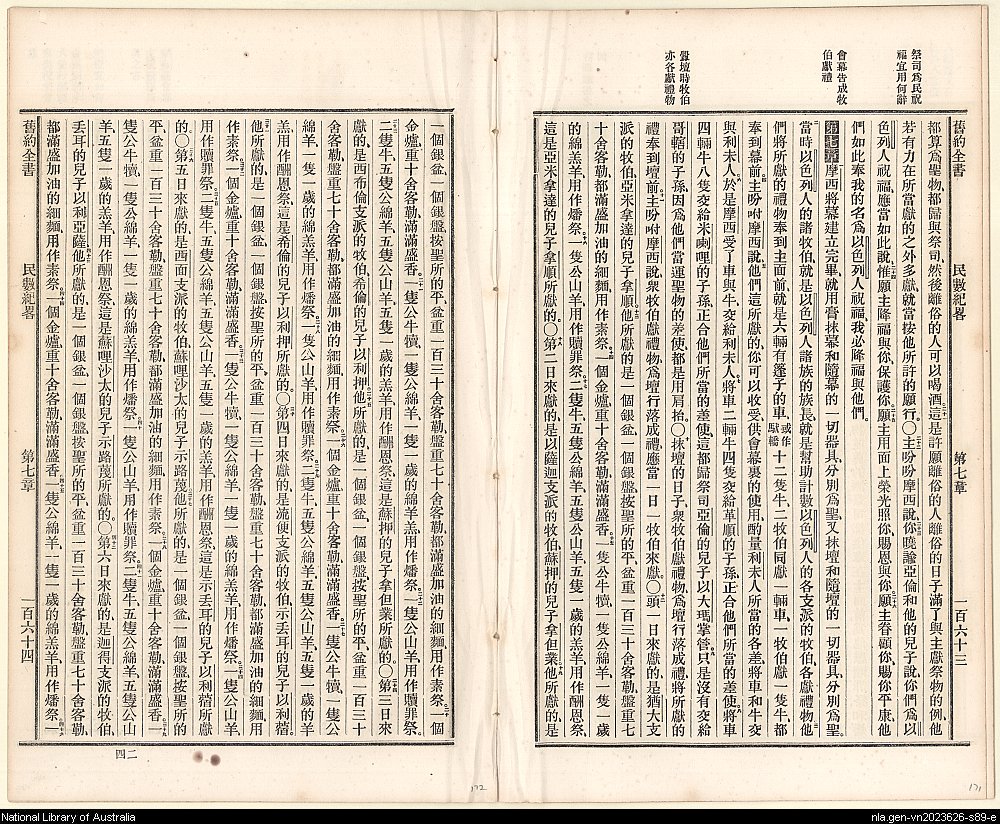 祭司爲民祝
福宜用何辭
會幕告成牧
伯獻禮
聖壇時牧伯
亦各獻禮物
舊約全書
民數紀畧
第七章
一百六十三
都算爲聖物都歸與祭司然後離俗的人可以喝酒這是許願離俗的人離俗的日子滿了與主獻祭物的例他
若有力在所當獻的之外多獻就當按他所許的願行〇主吩咐摩西說你曉諭亞倫和他的兒子說你們爲以
色列人祝福應當如此說惟願主降福與你保護你願主用面上榮光照你賜恩與你願主眷顧你賜你平康他
們如此奉我的名爲以色列人祝福我必降福與他們
第七章摩西將幕建立完畢就用膏抹幕和隨幕的一切器具分別爲聖又抹壇和隨壇的一切器具分別爲聖
當時以色列人的諸牧伯就是以色列人諸族的族長就是幫助計數以色列人的各支派的牧伯各獻禮物他
們將所獻的禮物奉到主面前就是六輛有篷子的車或作馱轎十二隻牛二牧伯同獻一輛車一牧伯獻一隻牛都
奉到幕前主吩咐摩西說他們這所獻的你可以收受供會幕裏的使用酌量利未人所當的各差將車和牛交
與利未人於是摩西受了車與牛交給利未人將車二輛牛四隻交給革順的子孫正合他們所當的差使將車
四輛牛八隻交給米喇哩的子孫正合他們所當的差使這都歸祭司亞倫的兒子以大瑪掌管只是沒有交給
哥轄的子孫因爲他們當運聖物的差使都是用肩抬〇抹壇的日子衆牧伯獻禮物爲壇行落成禮將所獻的
禮奉到壇前主吩咐摩西說衆牧伯獻禮物爲壇行落成禮應當一日一牧伯來獻〇頭一日來獻的是猶大支
派的牧伯亞米拿達的兒子拿順他所獻的是一個銀盆一個銀盤按聖所的平盆重一百三十舍客勒盤重七
十舍客勒都滿盛加油的細麵用作素祭一個金爐重十舍客勒滿滿盛香一隻公牛犢一隻公綿羊一隻一歲
的綿羔羊用作燔祭一隻公山羊用作贖罪祭二隻牛五隻公綿羊五隻公山羊五隻一歲的羔羊用作酬恩祭
這是亞米拿達的兒子拿順所獻的〇第二日來獻的是以薩迦支派的牧伯蘇押的兒子拿但業他所獻的是
一個銀盆一個銀盤按聖所的平盆重一百三十舍客勒盤重七十舍客勒都滿盛加油的細麵用作素祭一個
金爐重十舍客勒滿滿盛香一隻公牛犢一隻公綿羊一隻一歲的綿羔羊用作燔祭一隻公山羊用作贖罪祭
二隻牛五隻公綿羊五隻公山羊五隻一歲的羔羊用作酬恩祭這是蘇押的兒子拿但業所獻的〇第三日來
獻的是西布倫支派的牧伯希倫的兒子以利押他所獻的是一個銀盆一個銀盤按聖所的平盆重一百三十
舍客勒盤重七十舍客勒都滿盛加油的細麵用作素祭一個金爐重十舍客勒滿滿盛香一隻公牛犢一隻公
綿羊一隻一歲的綿羔羊用作燔祭一隻公山羊用作贖罪祭二隻牛五隻公綿羊五隻公山羊五隻一歲的羔
羔用作酬恩祭這是希倫的兒子以利押所獻的〇第四日來獻的是流便支派的牧伯示丟耳的兒子以利蓿
他所獻的是一個銀盆一個銀盤按聖所的平盆重一百三十舍客勒盤重七十舍客勒都滿盛加油的細麵用
作素祭一個金爐重十舍客勒滿滿盛香一隻公牛犢一隻公綿羊一隻一歲的綿羔羊用作燔祭一隻公山羊
用作贖罪祭二隻牛五隻公綿羊五隻公山羊五隻一歲的羔羊用作酬恩祭這是示丟耳的兒子以利蓿所獻
的〇第五日來獻的是西面支派的牧伯蘇哩沙太的兒子示路蔑他所獻的是一個銀盆一個銀盤按聖所的
平盆重一百三十舍客勒盤重七十舍客勒都滿盛加油的細麵用作素祭一個金爐重十舍客勒滿滿盛香一
隻公牛犢一隻公綿羊一隻一歲的綿羔羊用作燔祭一隻公山羊用作贖罪祭二隻牛五隻公綿羊五隻公山
羊五隻一歲的羔羊用作酬恩祭這是蘇哩沙太的兒子示路蔑所獻的〇第六日來獻的是迦得支派的牧伯
丟耳的兒子以利亞薩他所獻的是一個銀盆一個銀盤按聖所的平盆重一百三十舍客勒盤重七十舍客勒
都滿盛加油的細麵用作素祭一個金爐重十舍客勒滿滿盛香一隻公綿羊一隻一歲的綿羔羊用作燔祭一
舊約全書
民數紀畧
第七章
一百六十四
四二
172
171
National Library of Australia
nla.gen-vn2023626-s89-e